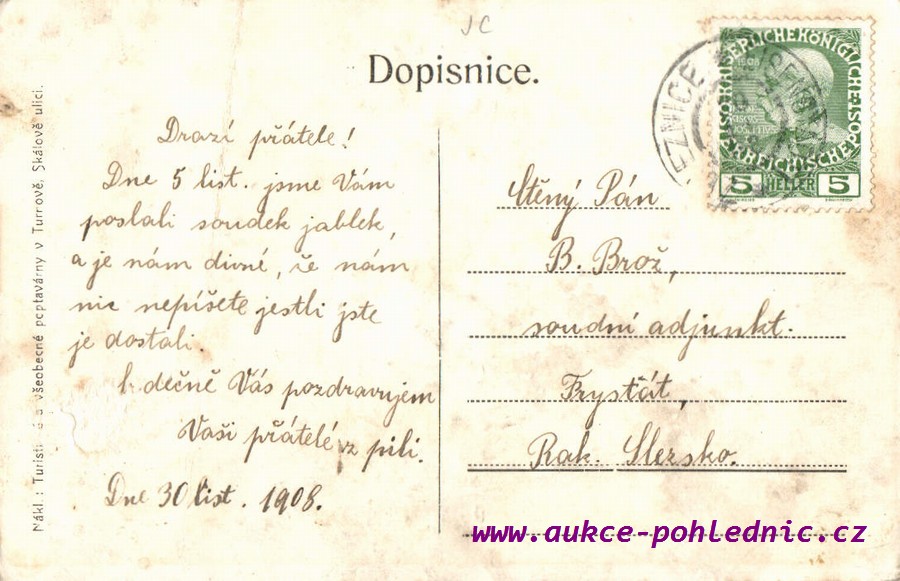 JC
Dopisnice.
Drazí přátele!
Dne 5 list. jsme Vám
poslali soudek jablek,
a je nám divné, že nám
nic nepíšete jestli jste
je dostali.
Srdečně Vás pozdravujem
Vaši přátelé z pili.
Dne 30 list. 1908.
Ctěný Pán
B. Brož,
soudní adjunkt.
Fryštát,
Rak. Slezsko.
5 HELLER 5
Nákl.: všeobecné poptavárny v Turnově, Skálově ulici.
www.aukce-pohlednic.cz